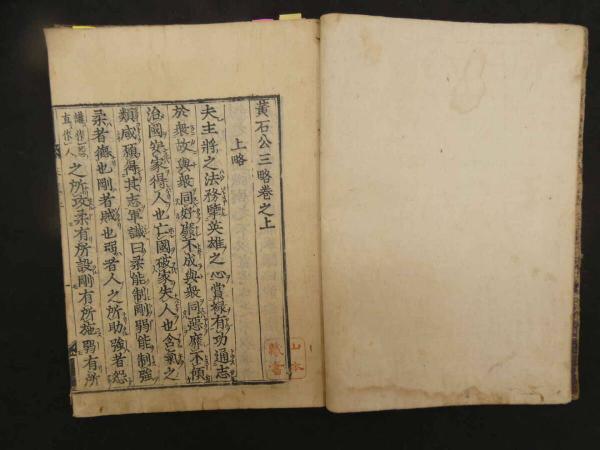 黃石公三略卷之上
上略
夫主將之法務擥英雄之心賞祿有功通志
於衆故與衆同好靡不成與衆同惡靡不傾
治國安家得人也亡國破家失人也含氣之
類咸願得其志軍讖曰柔能制剛弱能制強
柔者德也剛者賊也弱者人之所助強者怨
之所攻柔有所設剛有所施弱有所
山本
藏書